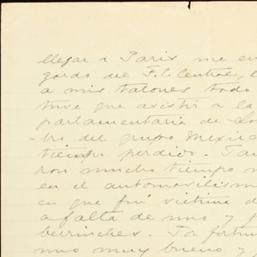 llegar a Paris me en
gardo del F.C. Central,
a mis talones todo
tuve que asistir a la
parlamentaria de Lo
bro del grupo Mexica
tiempo perdido. Tam
ron mucho tiempo
en el automovilism
en que fui victima d
a falta de uno y
berrinches. Por fortu
uno muy bueno y